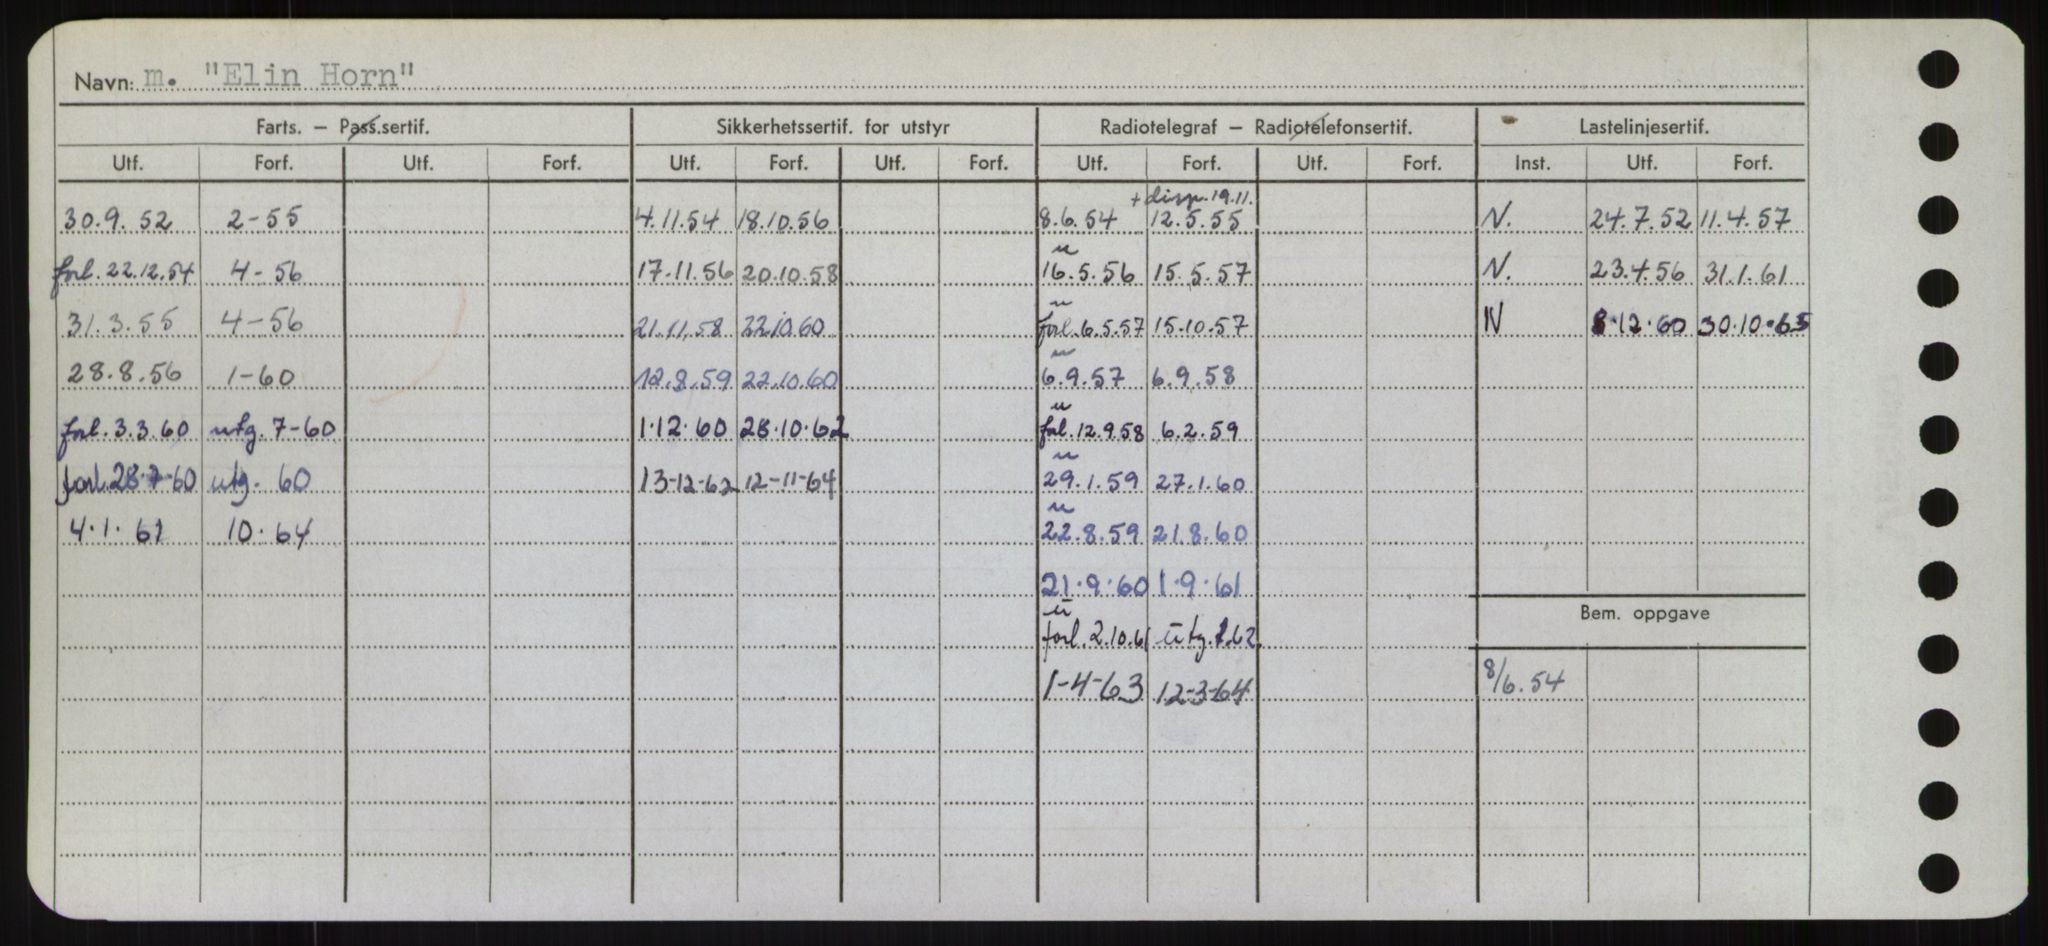 Navn: m. "Elin Horn"
Farts. – Pass.sertif. Sikkerhetssertif. for utstyr Radiotelegraf – Radiotelefonsertif. Lastelinjesertif.
Utf. Forf. Utf. Forf. Utf. Forf. Utf. Forf. Utf. Forf. Utf. Forf. Inst. Utf. Forf.
+ disp. 19.11.
30.9.52 2-55 4.11.54 18.10.56 8.6.54 12.5.55 N. 24.7.52 11.4.57
u
forl. 22.12.54 4-56 17.11.56 20.10.58 16.5.56 15.5.57 N. 23.4.56 31.1.61
u
31.3.55 4-56 21.11.58 22.10.60 forl. 6.5.57 15.10.57 N 8.12.60 30.10.65
u
28.8.56 1-60 12.8.59 22.10.60 6.9.57 6.9.58
u
forl. 3.3.60 utg. 7-60 1.12.60 28.10.62 forl. 12.9.58 6.2.59
u
forl. 28.7-60 utg. 60 13-12-62 12-11-64 29.1.59 27.1.60
u
4.1.61 10.64 22.8.59 21.8.60
21.9.60 1.9.61
Bem. oppgave
u
forl. 2.10.61 utg. 1.62
1-4-63 12-3-64 8/6.54